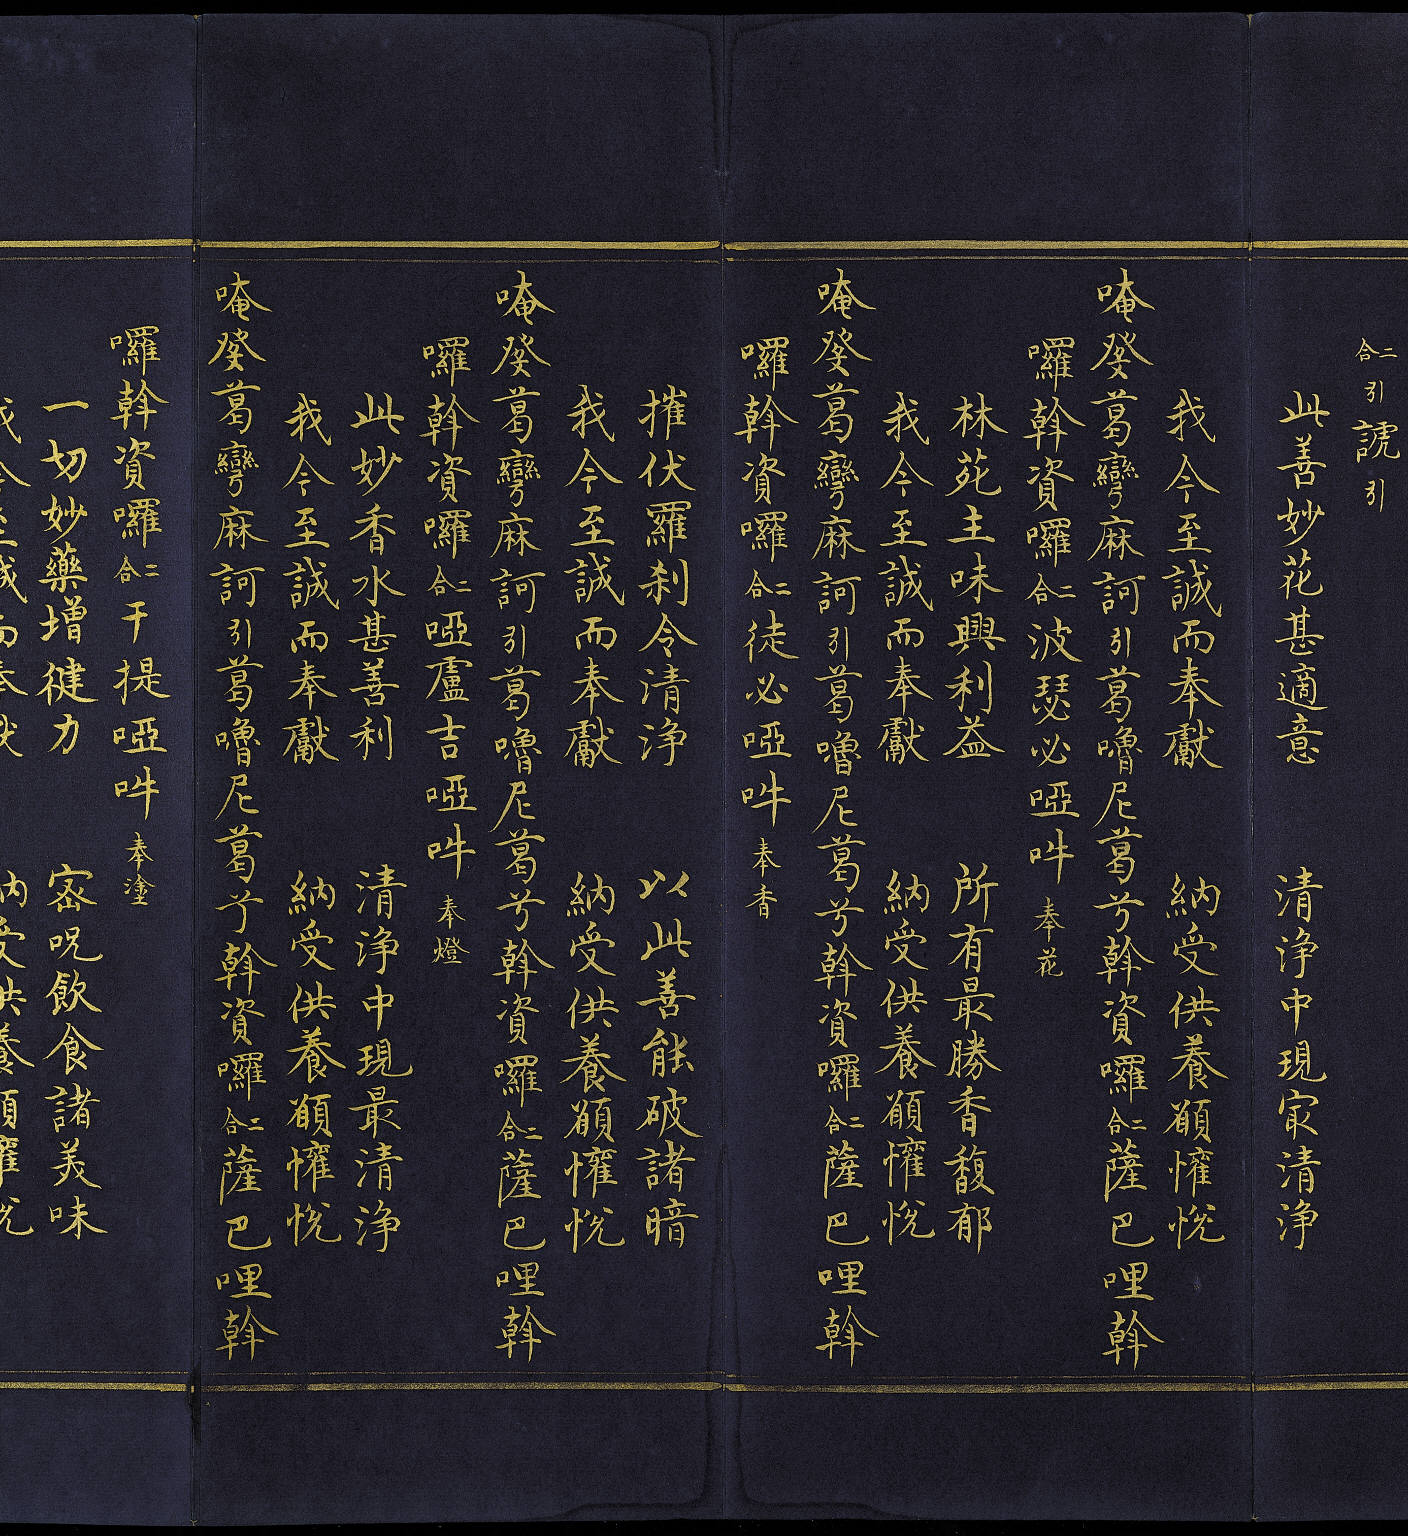 二合引諕引
此善妙花甚適意　清淨中現㝡清淨
我今至誠而奉獻　納受供養願懽悅
唵癹葛彎麻訶引葛嚕尼葛兮斡資囉二合薩巴哩斡
囉斡資囉二合波瑟必啞吽奉花
林苑主味興利益　所有最勝香馥郁
我今至誠而奉獻　納受供養願懽悅
唵癹葛彎麻訶引葛嚕尼葛兮斡資囉二合薩巴哩斡
囉斡資囉二合徒必啞吽奉香
摧伏羅刹令清淨　以此善能破諸暗
我今至誠而奉獻　納受供養願懽悅
唵癹葛彎麻訶引葛嚕尼葛兮斡資囉二合薩巴哩斡
囉斡資囉二合啞盧吉啞吽奉燈
此妙香水甚善利　清淨中現最清淨
我今至誠而奉獻　納受供養願懽悅
唵癹葛彎麻訶引葛嚕尼葛兮斡資囉二合薩巴哩斡
囉斡資囉二合干提啞吽奉塗
一切妙藥增健力　密呪飲食諸美味
我今至誠而奉獻　納受供養願懽悅